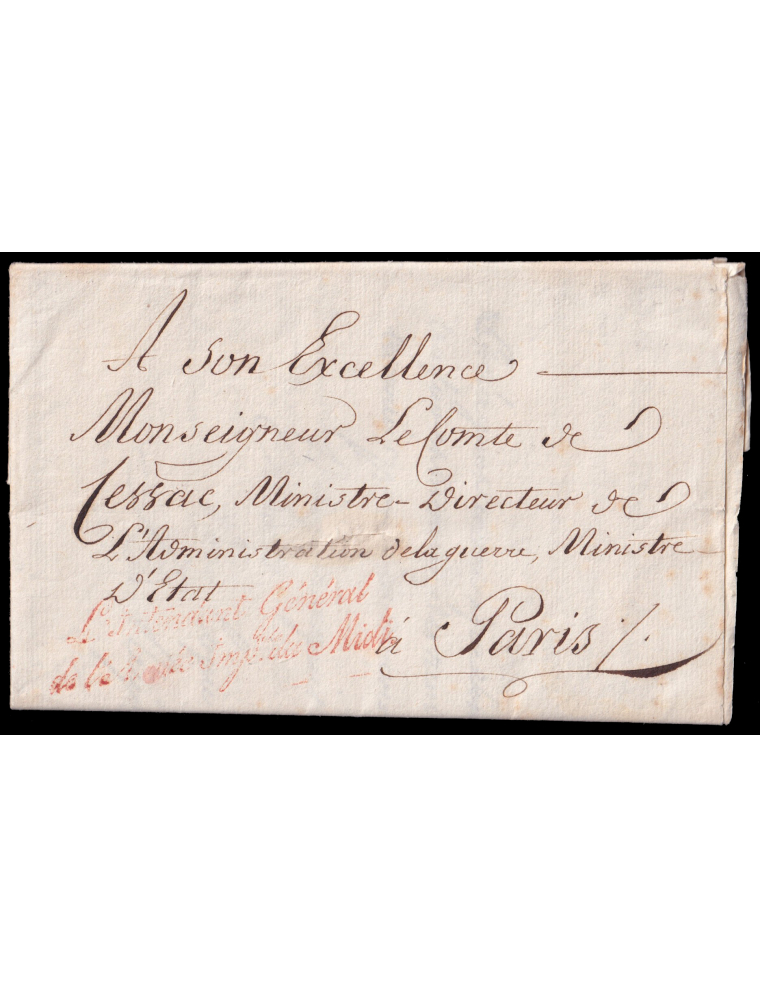 A Son Excellence
Monseigneur Le Comte de
Cessac, Ministre-Directeur de
L'Administration de la guerre, Ministre
D'Etat
à Paris
L'Intendant Général
de l'Armée Imp.le du Midi